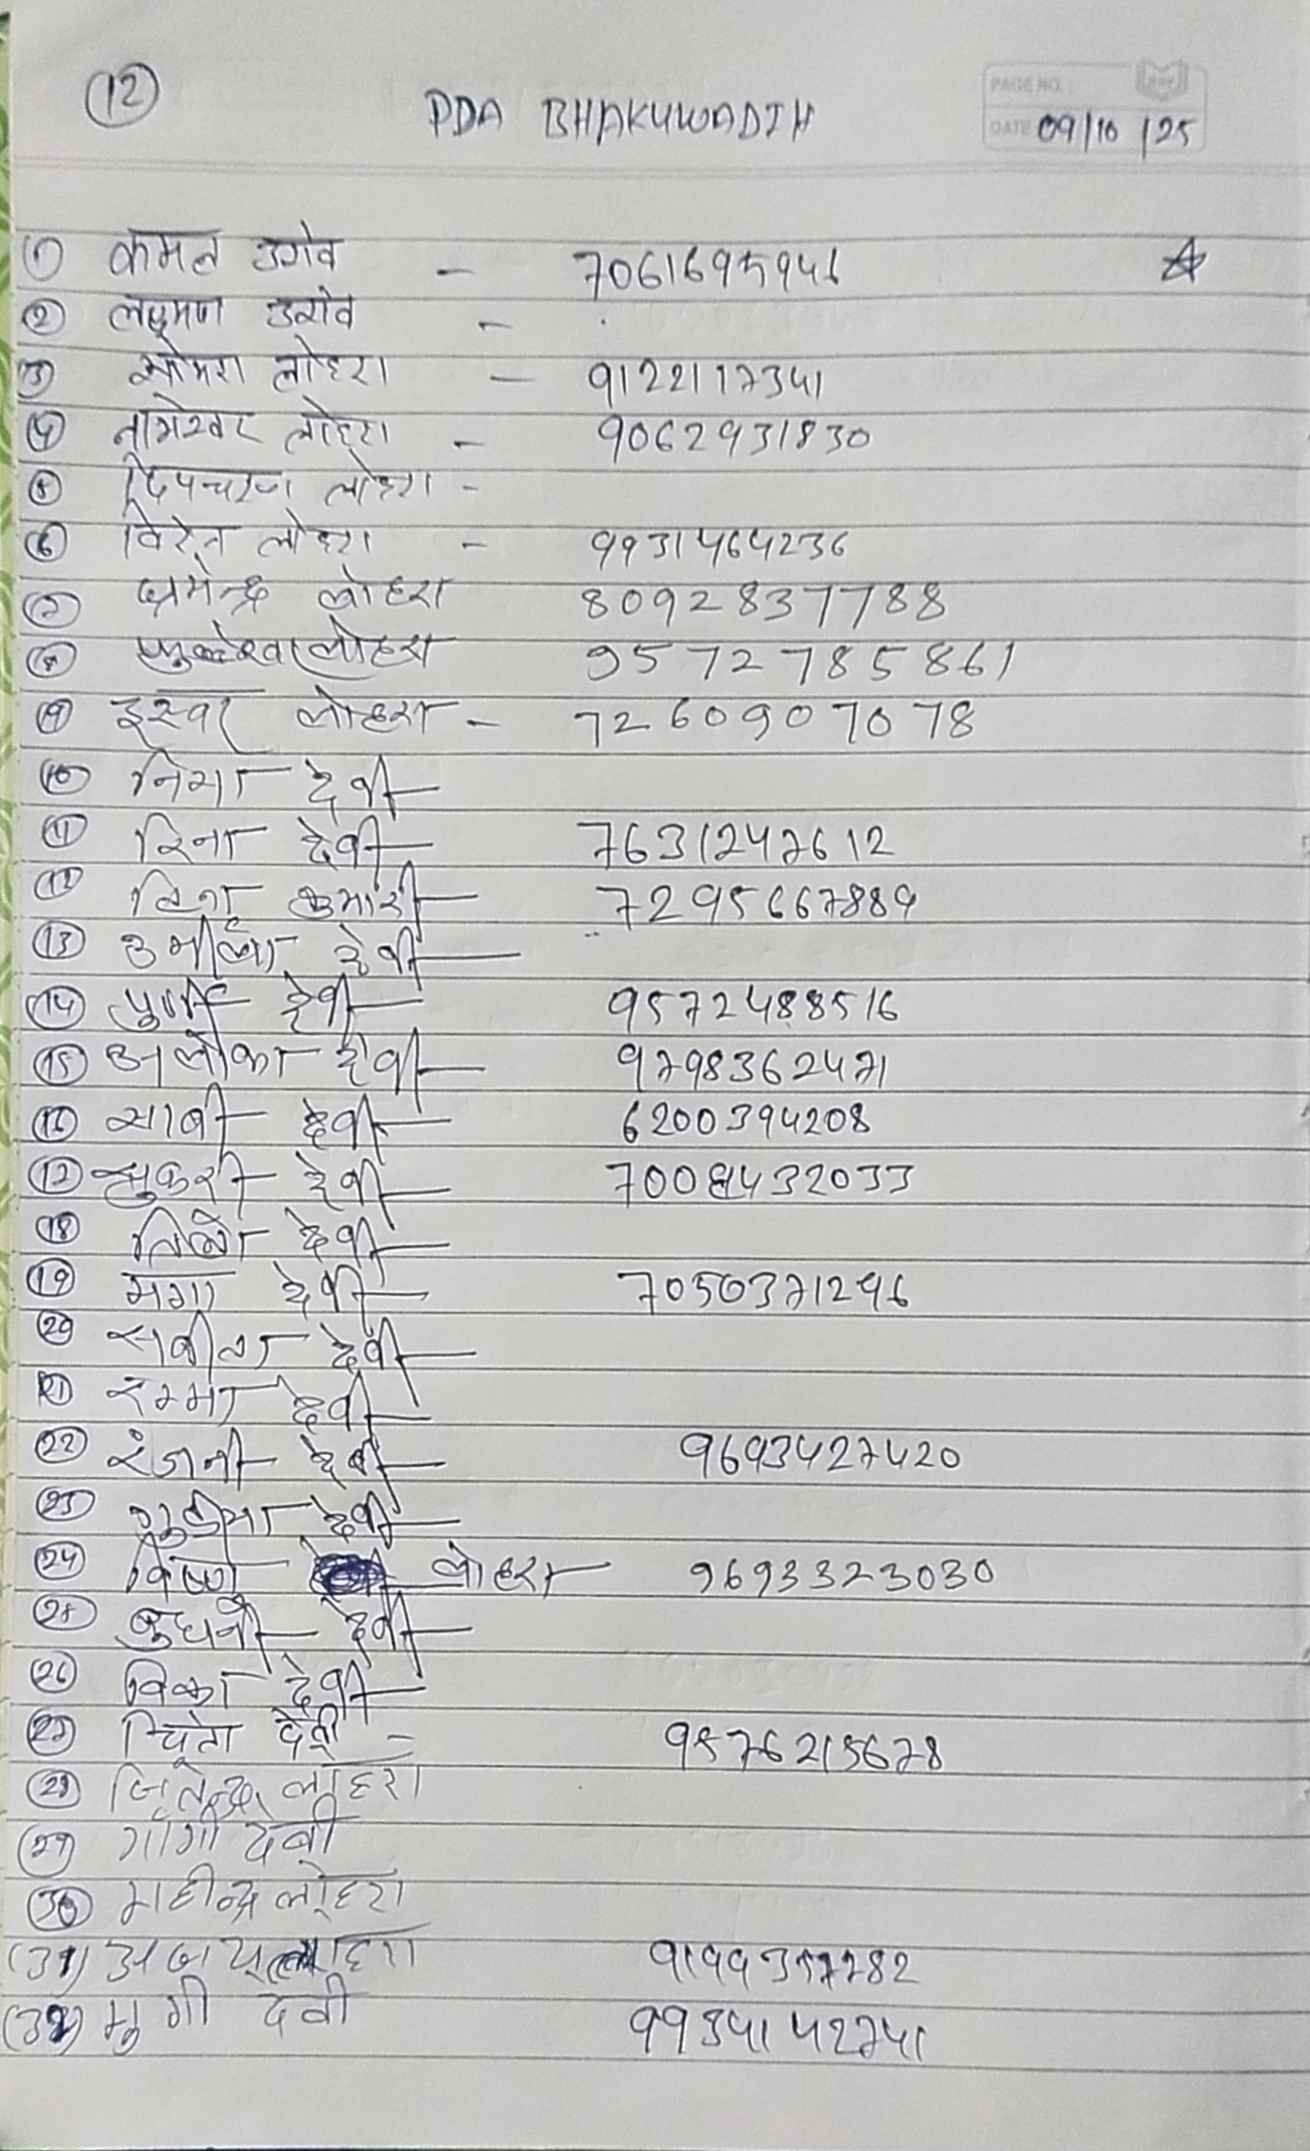 12
PDA BHAKUWADIH
PAGE NO.
DATE 09/10/25
1 कमल उराँव - 7061695946
2 लक्ष्मण उराँव -
3 सोमरा लोहरा - 9122117341
4 नागेश्वर लोहरा - 9062931830
5 दिपचरण लोहरा -
6 विरेन लोहरा - 9931464236
7 धर्मेन्द्र लोहरा 8092837788
8 लोहरा 9572785861
9 इस्वर लोहरा - 7260907078
10 देवी
11 रिना देवी 7631247612
12 रिना कुमारी 7295667889
13 देवी
14 देवी 9572488516
15 अलोका देवी 9798362471
16 साबी देवी 6200394208
17 सुकरी देवी 7008432033
18 देवी
19 मगा देवी 7050371296
20 सबीता देवी
21 रम्भा देवी
22 रंजनी देवी 9693427420
23 गुडीया देवी
24 विष्णु लोहरा 9693323030
25 बुधनी देवी
26 देवी
27 देवी - 9576215678
28 जितेन्द्र लोहरा
29 गांगी देवी
30 महीन्द्र लोहरा
(31) अजय लोहरा 9199357782
(32) मुगी देवी 9934142741